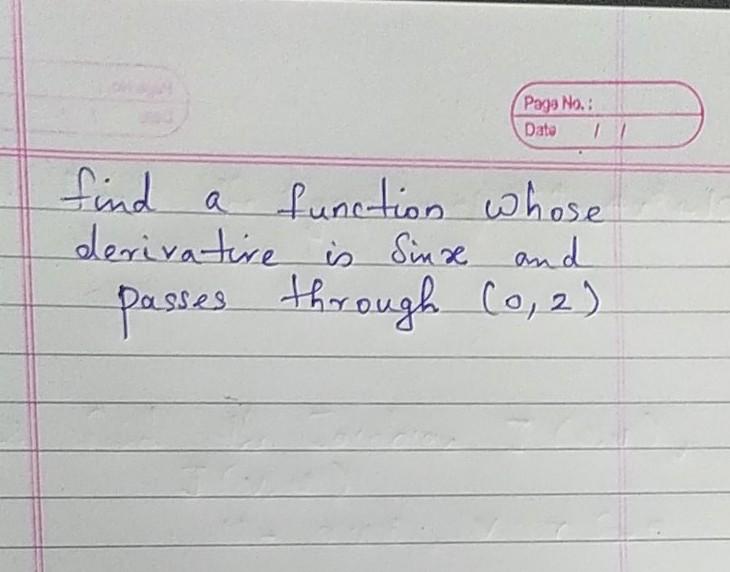 Page No.:
Date / /
find a function whose
derivative is Sinx and
passes through (0,2)